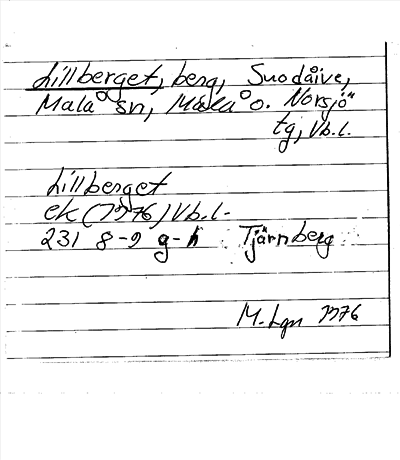 Lillberget, berg, Suodåive,
Malå sn, Malå o. Norsjö
tg, Vb.l.
Lillberget
ek (1976) Vb.l.
231 8-9 g-h Tjärnberg
M. Lgn 1976